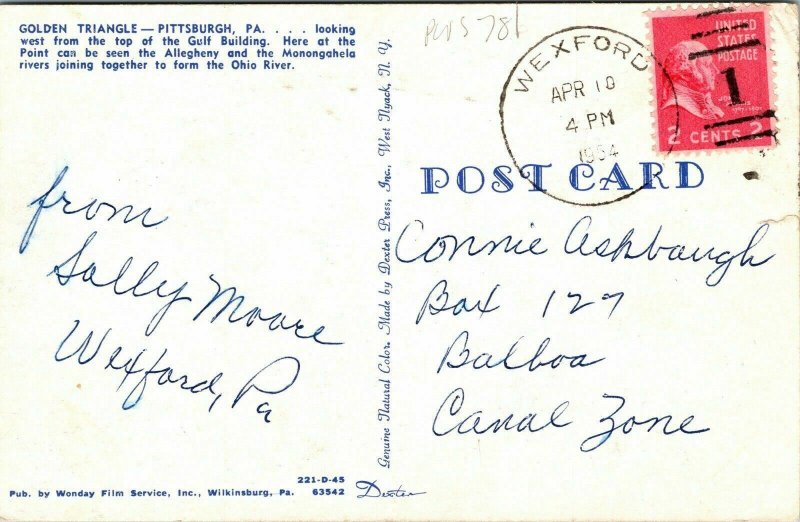 GOLDEN TRIANGLE — PITTSBURGH, PA. . . . looking
west from the top of the Gulf Building. Here at the
Point can be seen the Allegheny and the Monongahela
rivers joining together to form the Ohio River.
WEXFORD
APR 10
4 PM
1954
UNITED
STATES
POSTAGE
1
2 CENTS 2
POST CARD
from
Sally Moore
Wexford, Pa
Connie Ashbaugh
Box 127
Balboa
Canal Zone
Genuine Natural Color. Made by Dexter Press, Inc., West Nyack, N. Y.
221-D-45
Pub. by Wonday Film Service, Inc., Wilkinsburg, Pa. 63542
Dexter